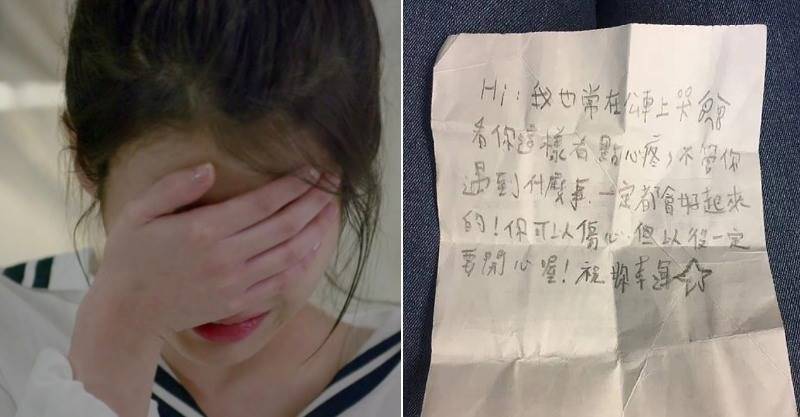 Hi:我也常在公車上哭
看你這樣有點心疼,不管你
遇到什麼事.一定都會好起來
的!你可以傷心.但以後一定
要開心喔!祝妳幸運☆